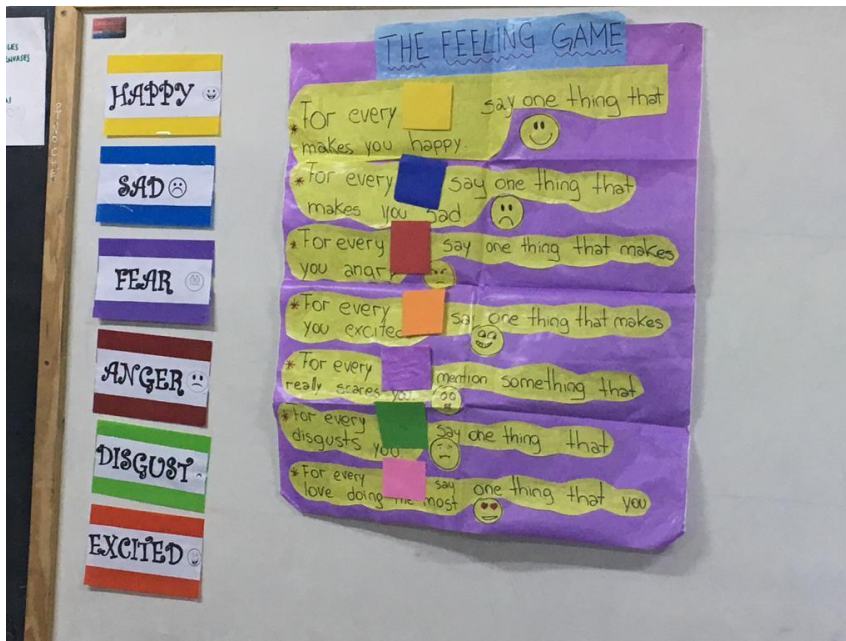 LES
ENVASES
HAPPY
SAD
FEAR
ANGER
DISGUST
EXCITED
THE FEELING GAME
* For every say one thing that
makes you happy.
* For every say one thing that
makes you sad
* For every say one thing that makes
you angry
* For every say one thing that makes
you excited
* For every mention something that
really scares you
* For every say one thing that
disgusts you
* For every say one thing that you
love doing the most